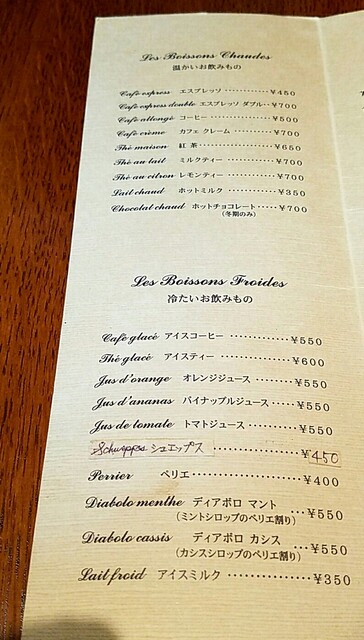 Les Boissons Chaudes
温かいお飲みもの
Café express エスプレッソ ············ ¥450
Café express double エスプレッソ ダブル ··· ¥700
Café allongé コーヒー ················ ¥500
Café crème カフェ クレーム ············ ¥700
Thé maison 紅 茶 ···················· ¥650
Thé au lait ミルクティー ············· ¥700
Thé au citron レモンティー ············ ¥700
Lait chaud ホットミルク ·············· ¥350
Chocolat chaud ホットチョコレート ······ ¥700
(冬期のみ)
Les Boissons Froides
冷たいお飲みもの
Café glacé アイスコーヒー ············ ¥550
Thé glacé アイスティー ·············· ¥600
Jus d'orange オレンジジュース ········ ¥550
Jus d'ananas パイナップルジュース ····· ¥550
Jus de tomate トマトジュース ········· ¥550
Schweppes シュエップス ·············· ¥450
Perrier ペリエ ···················· ¥400
Diabolo menthe ディアボロ マント ····· ¥550
(ミントシロップのペリエ割り)
Diabolo cassis ディアボロ カシス ····· ¥550
(カシスシロップのペリエ割り)
Lait froid アイスミルク ·············· ¥350